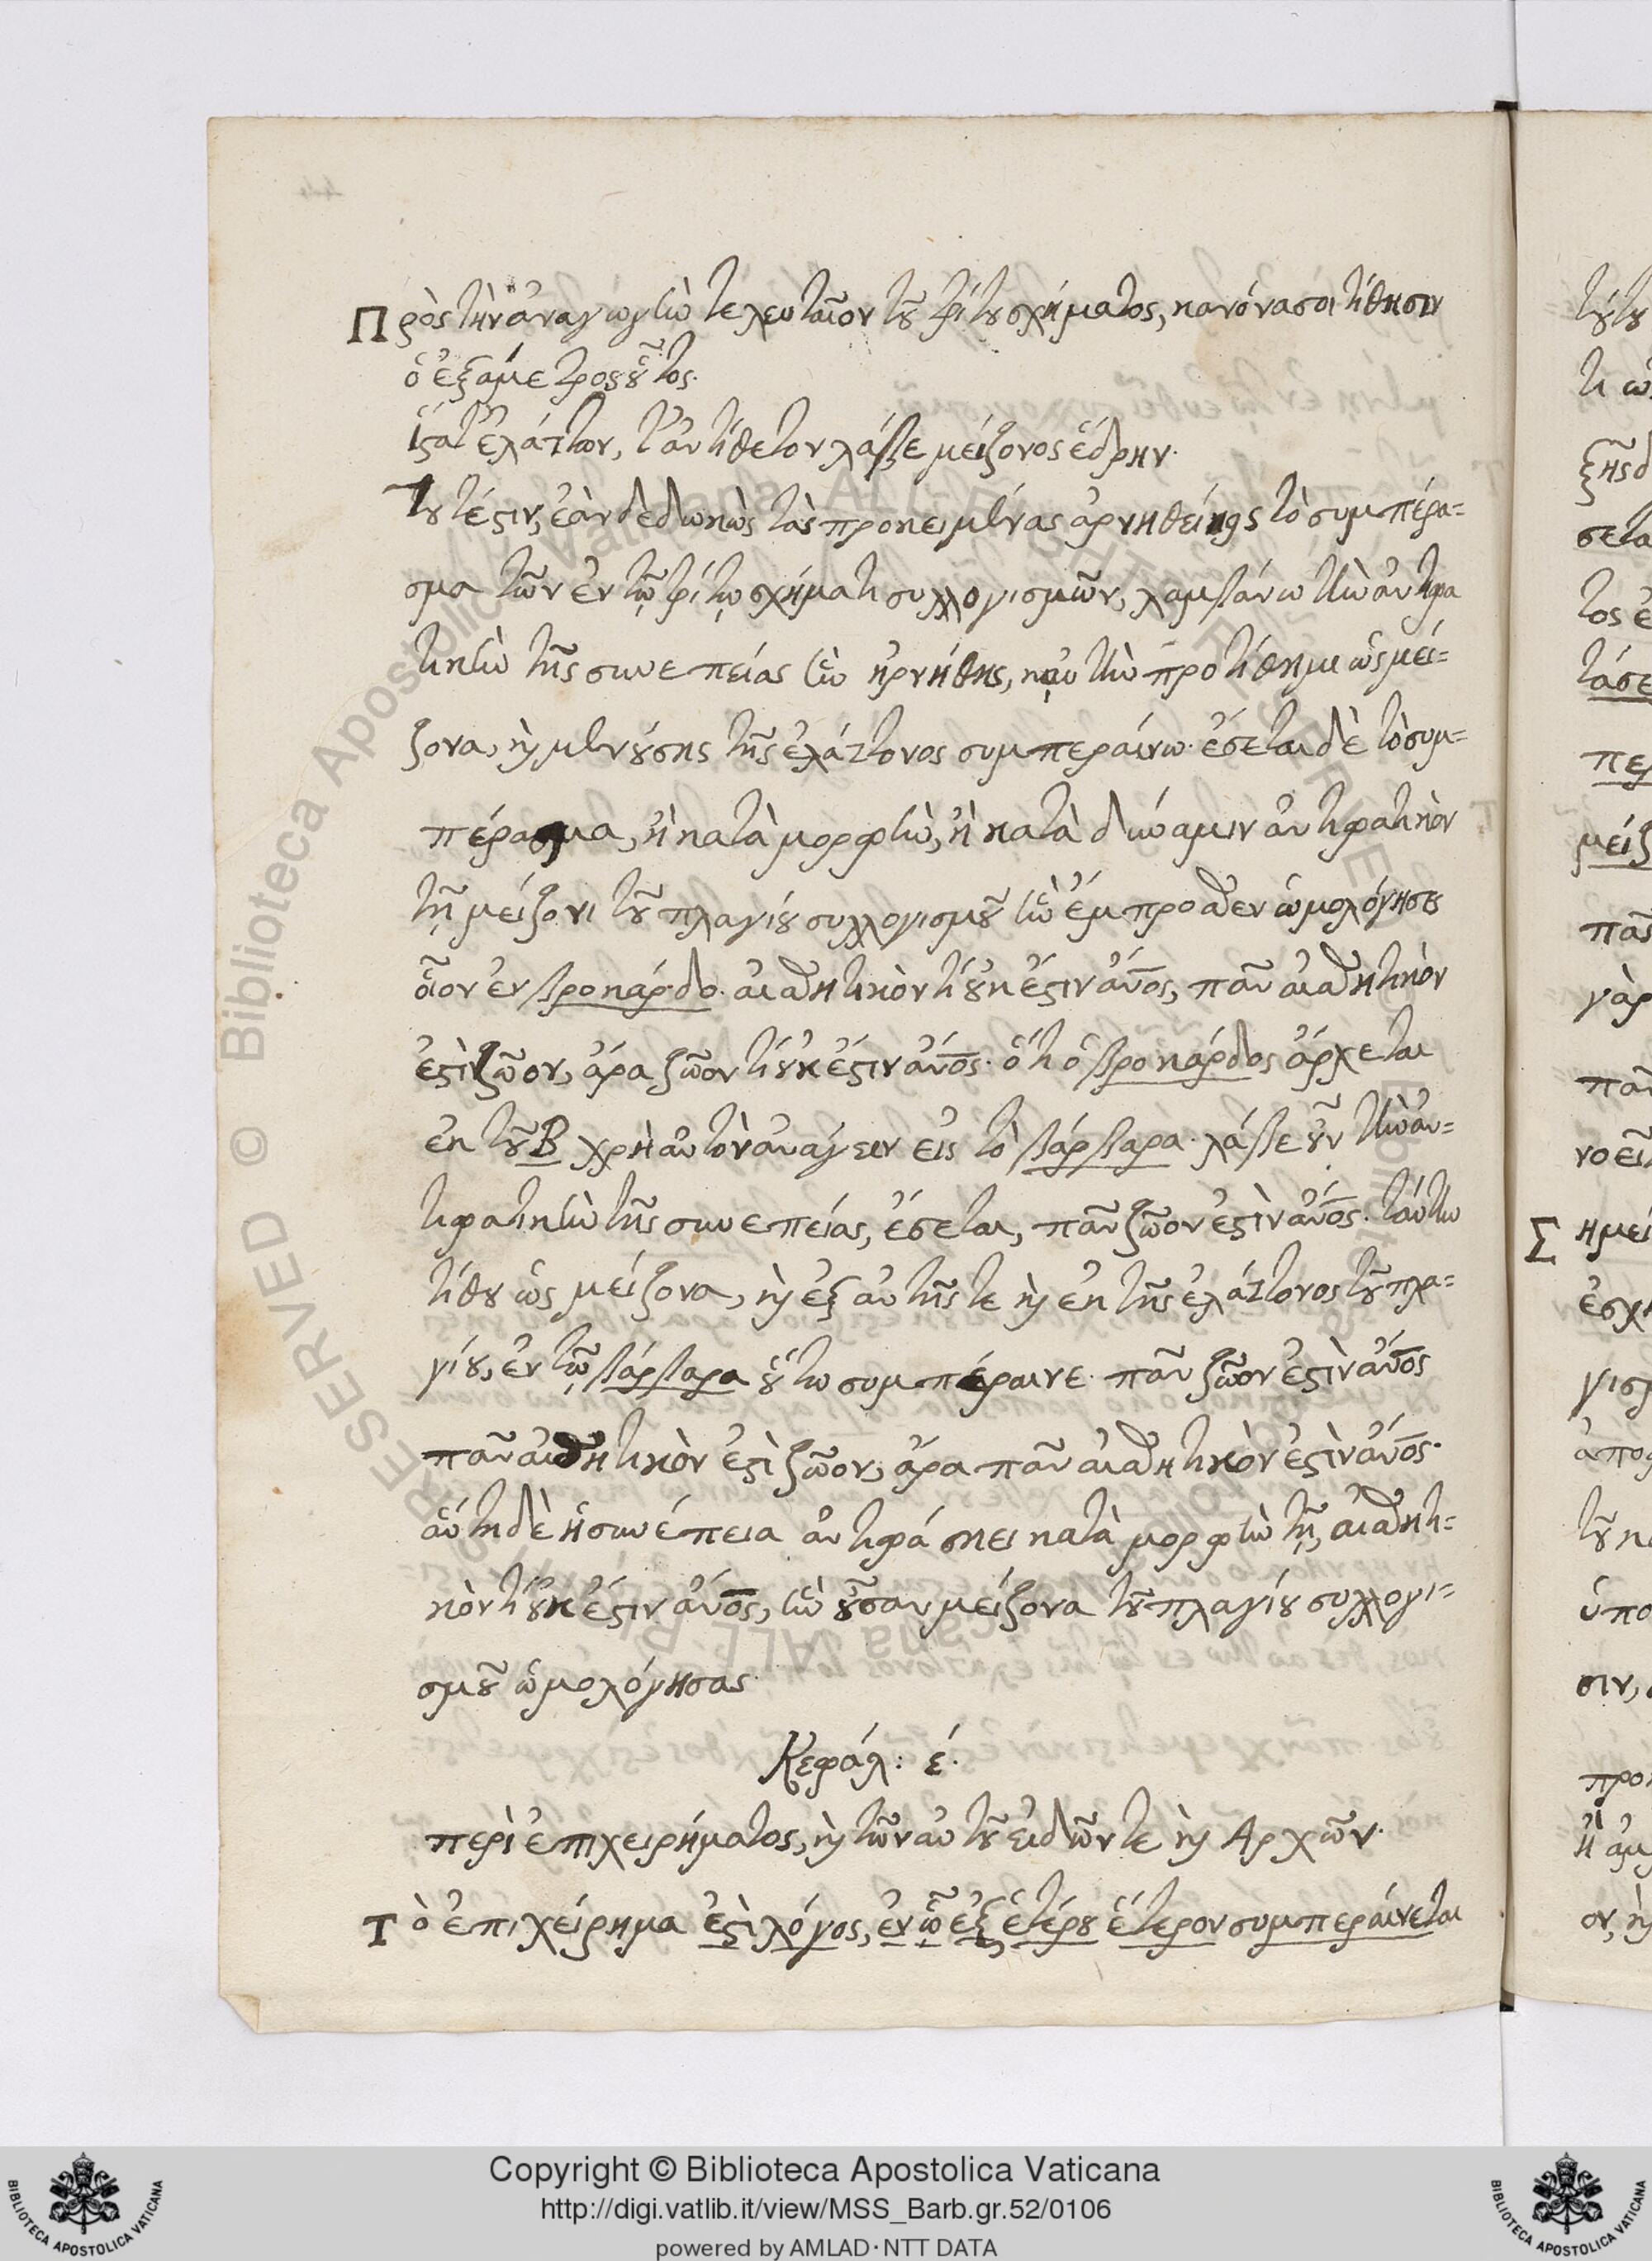 Πρὸς τὴν ἀναγωγὴν τελευταῖον τοῦ τρίτου σχήματος, κανόνα σοι τίθησιν
ὁ ἑξάμετρος οὗτος.
ἵστατ' ἐλάττων, τ' ἀντίθετον λάβε μείζονος ἕδρην.
Τουτέστιν, ἐὰν δεδωκὼς τὰς προκειμένας ἀρνηθείης τὸ συμπέρα=
σμα τῶν ἐν τῷ τρίτῳ σχήματι συλλογισμῶν, λαμβάνω τὴν ἀντιφα
τικὴν τῆς συνεπείας ἣν ἠρνήθης, καὶ αὐτὴν προτίθημι ὡς μεί=
ζονα, καὶ μενούσης τῆς ἐλάττονος συμπεραίνω. ἔσεται δὲ τὸ συμ=
πέρασμα, ἢ κατὰ μορφὴν, ἢ κατὰ δύναμιν ἀντιφατικὸν
τῇ μείζονι τοῦ πλαγίου συλλογισμοῦ ἣν ἔμπροσθεν ὡμολόγησας
οἷον ἐν βροκάρδο. αἰσθητικὸν τὶ οὐκ ἔστιν ἄνος, πᾶν αἰσθητικὸν
ἐστὶ ζῶον, ἄρα ζῶον τὶ οὐκ ἔστιν ἄνος. ὅτι ὁ βροκάρδος ἄρχεται
ἐκ τοῦ Β χρὴ αὐτὸν ἀνάγειν εἰς τὸ βάρβαρα. λάβε οὖν τὴν ἀν=
τιφατικὴν τῆς συνεπείας, ἔσεται, πᾶν ζῶον ἐστὶν ἄνος. ταύτην
τίθου ὡς μείζονα, καὶ ἐξ αὐτῆς τε καὶ ἐκ τῆς ἐλάττονος τοῦ πλα=
γίου, ἐν τῷ βάρβαρα οὕτω συμπέραινε. πᾶν ζῶον ἐστὶν ἄνος
πᾶν αἰσθητικὸν ἐστὶ ζῶον, ἄρα πᾶν αἰσθητικὸν ἐστὶν ἄνος.
αὕτη δὲ ἡ συνέπεια ἀντιφάσκει κατὰ μορφὴν τῇ, αἰσθητι=
κὸν τὶ οὐκ ἔστιν ἄνος, ἣν οὖσαν μείζονα τοῦ πλαγίου συλλογι=
σμοῦ ὡμολόγησας.
Κεφάλ: έ.
περὶ ἐπιχειρήματος, καὶ τῶν αὐτοῦ εἰδῶν τε καὶ Αρχῶν.
Τὸ ἐπιχείρημα ἐστὶ λόγος, ἐν ᾧ ἐξ ἑτέρου ἕτερον συμπεραίνεται
Copyright © Biblioteca Apostolica Vaticana
http://digi.vatlib.it/view/MSS_Barb.gr.52/0106
powered by AMLAD·NTT DATA